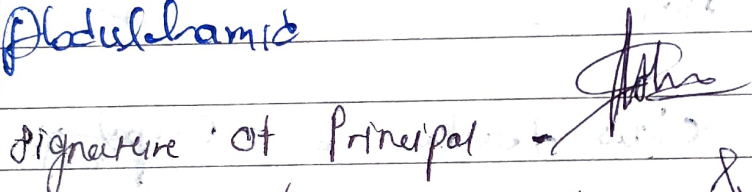 Abdulhamid
Signature of Principal -